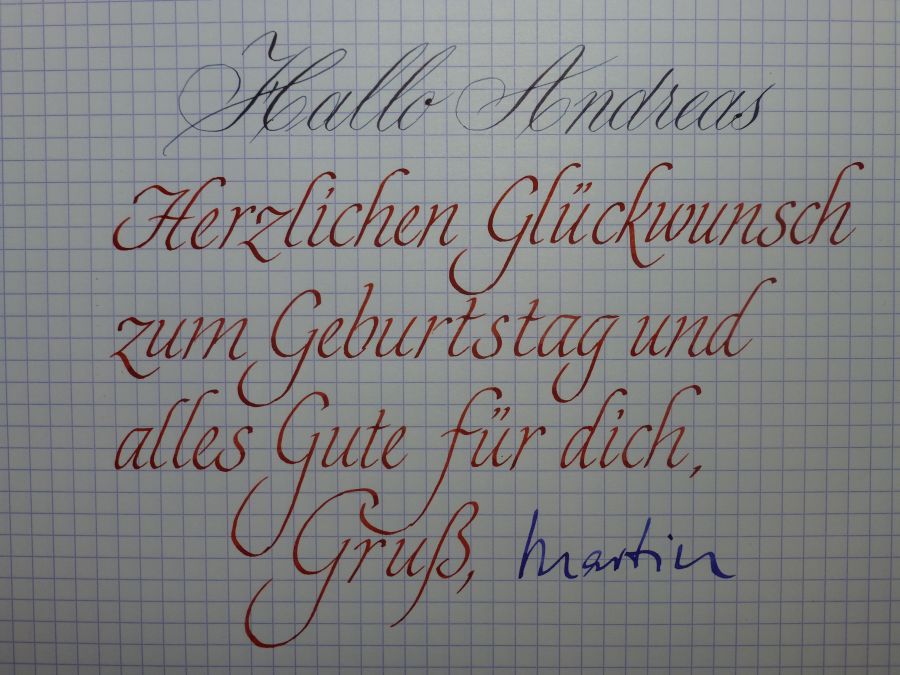 Hallo Andreas
Herzlichen Glückwunsch
zum Geburtstag und
alles Gute für dich,
Gruß, Martin